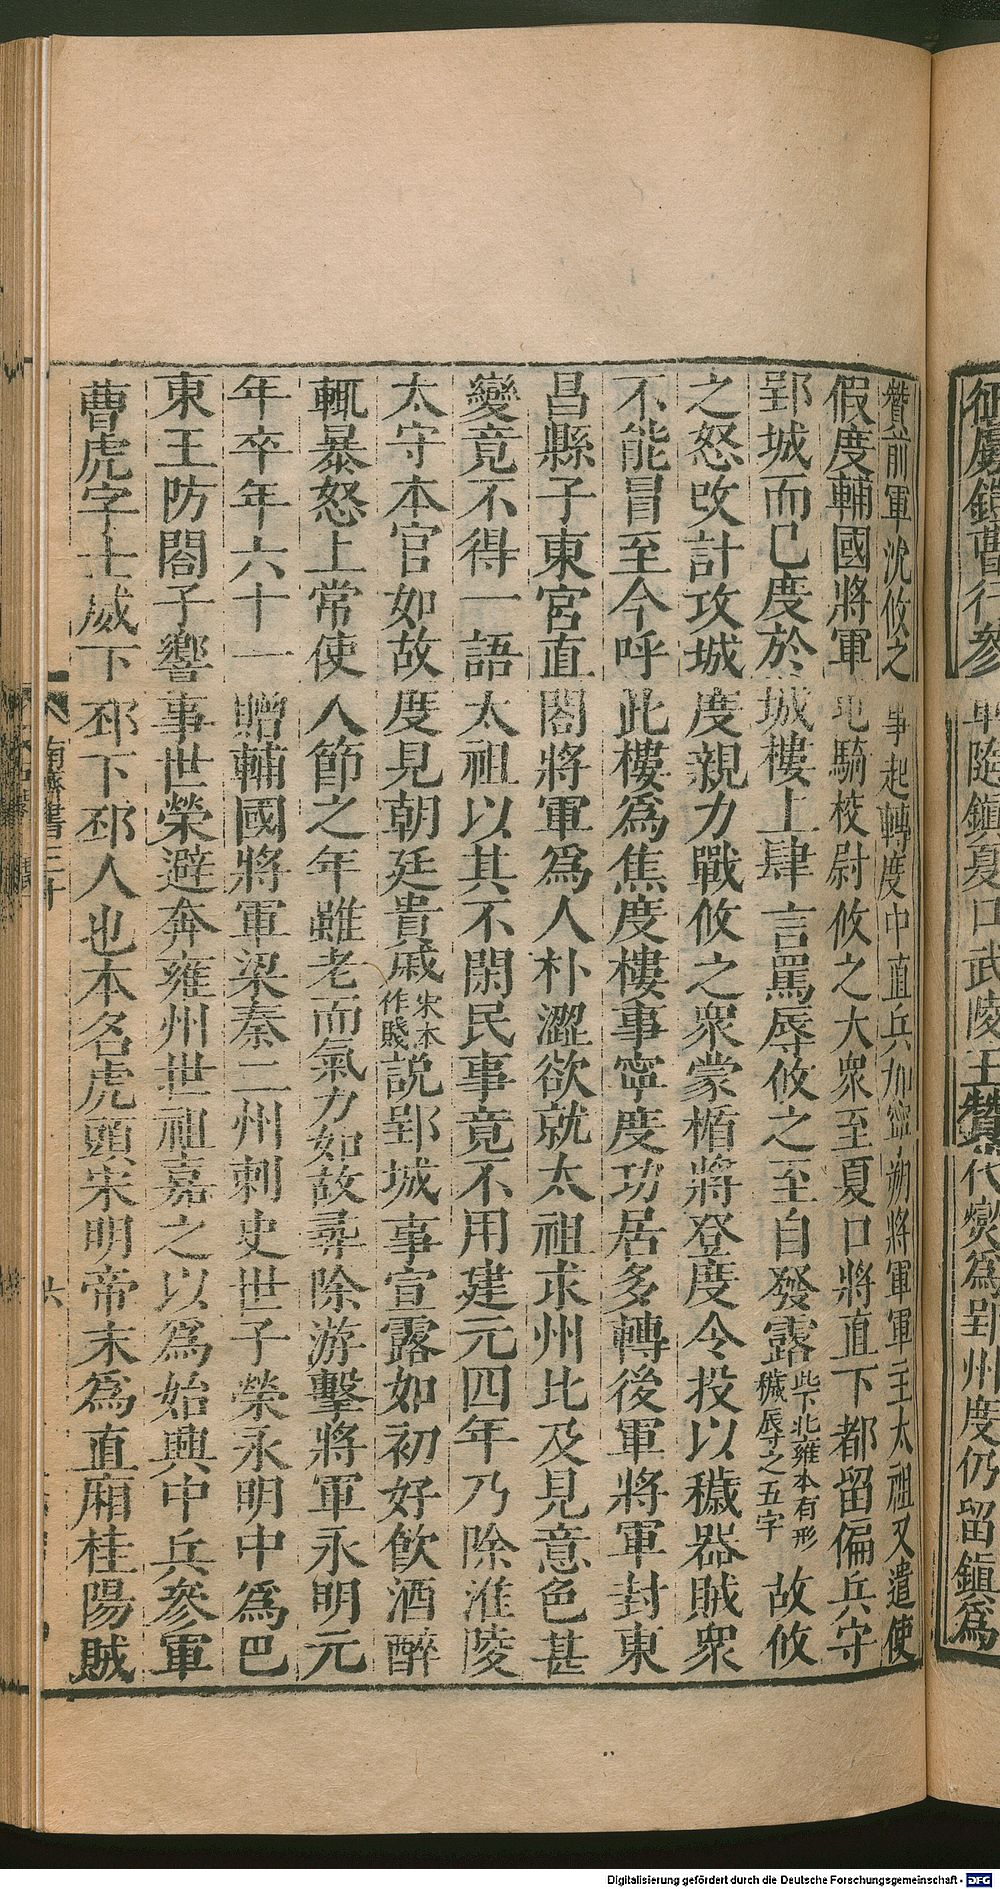 征虜鎮曹行參軍隨鎮夏口武陵王贊代燮爲郢州度仍留鎮爲
贊前軍沈攸之事起轉度中直兵加寧朔將軍軍主太祖又遣使
假度輔國將軍屯騎校尉攸之大衆至夏口將直下都留偏兵守
郢城而已度於城樓上肆言罵辱攸之至自發露此下北雍本有形穢辱之五字故攸
之怒攺計攻城度親力戰攸之衆蒙楯將登度令投以穢器賊衆
不能冒至今呼此樓爲焦度樓事寧度功居多轉後軍將軍封東
昌縣子東宮直閤將軍爲人朴澀欲就太祖求州比及見意色甚
變竟不得一語太祖以其不閑民事竟不用建元四年乃除淮陵
太守本官如故度見朝廷貴戚宋本作賤説郢城事宣露如初好飮酒醉
輒暴怒上常使人節之年雖老而氣力如故尋除游擊將軍永明元
年卒年六十一贈輔國將軍梁秦二州刺史世子榮永明中爲巴
東王防閤子響事世榮避奔雍州世祖嘉之以爲始興中兵參軍
曹虎字士威下邳下邳人也本名虎頭宋明帝末爲直廂桂陽賊
南齊書三十
六
Digitalisierung gefördert durch die Deutsche Forschungsgemeinschaft - DFG